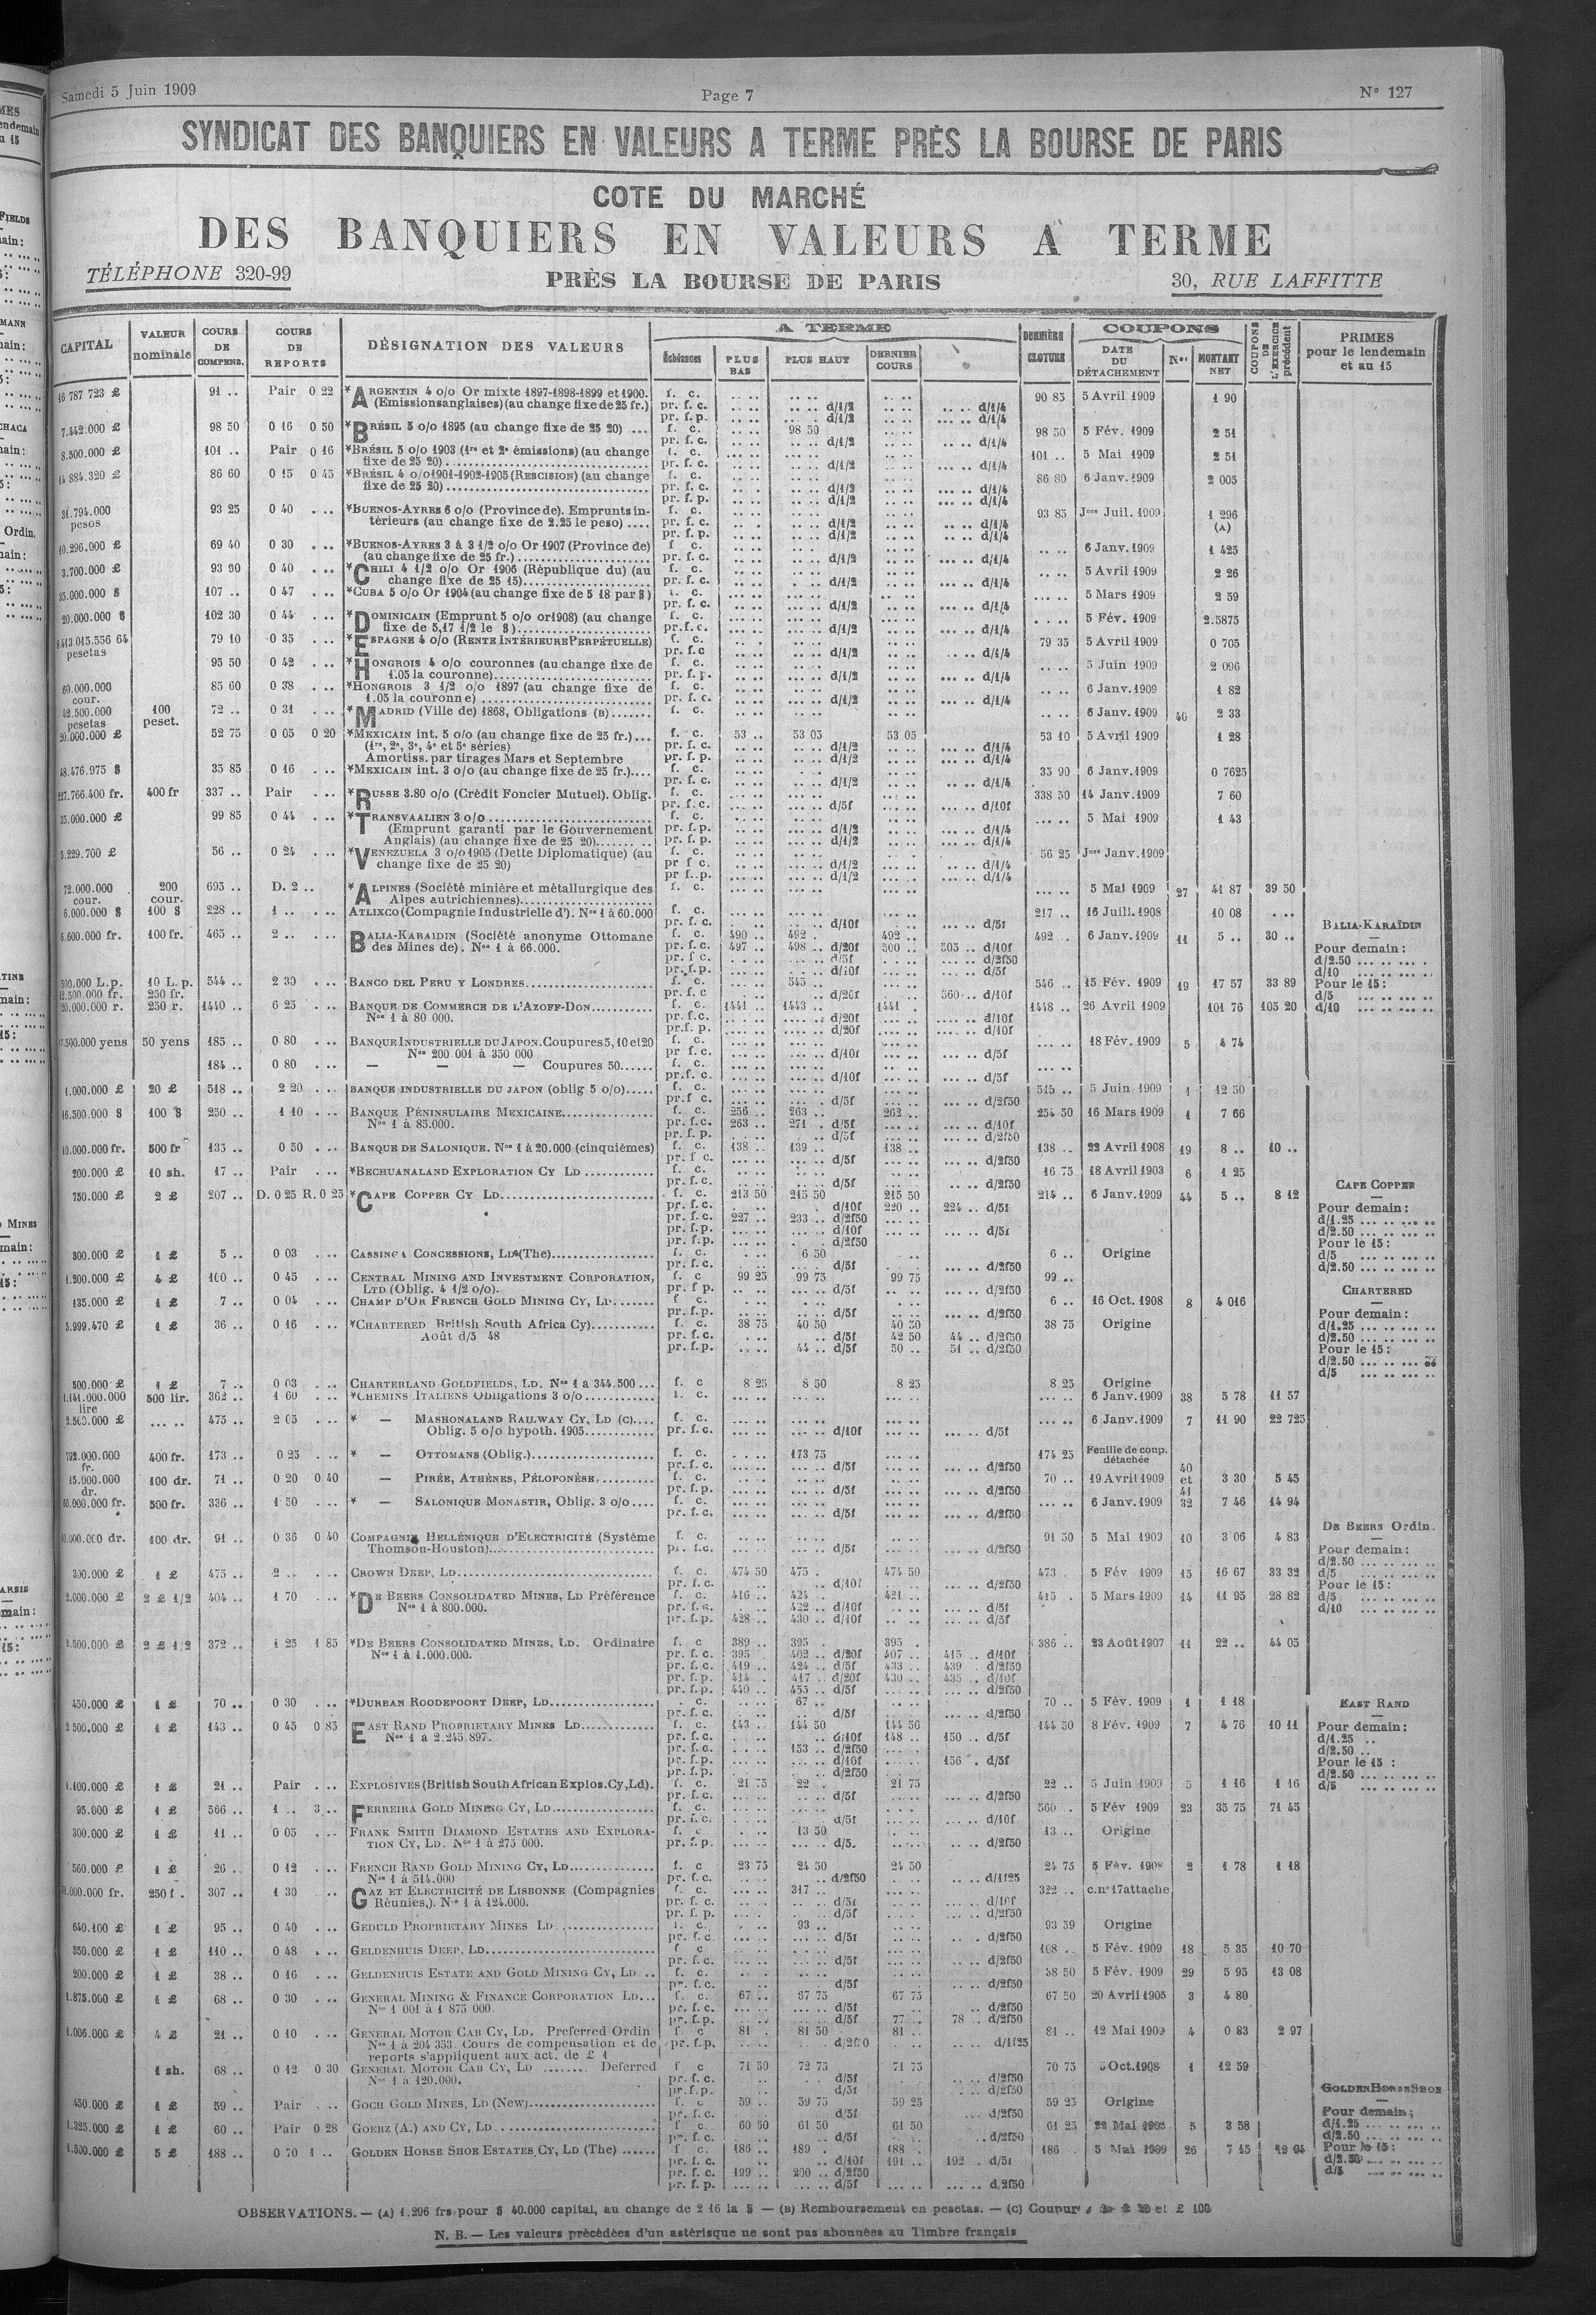 Samedi 5 Juin 1909
Page 7
N° 127
SYNDICAT DES BANQUIERS EN VALEURS A TERME PRÈS LA BOURSE DE PARIS
COTE DU MARCHÉ
DES BANQUIERS EN VALEURS A TERME
TÉLÉPHONE 320-99
PRÈS LA BOURSE DE PARIS
30, RUE LAFFITTE
CAPITAL | VALEUR nominale | COURS DE COMPENS. | COURS DE REPORTS | DÉSIGNATION DES VALEURS | A TERME | Échéances | PLUS BAS | PLUS HAUT | DERNIER COURS | DERNIÈRE CLOTURE | COUPONS | DATE DU DÉTACHEMENT | Nos | MONTANT NET | COUPONS DE L'EXERCICE précédent | PRIMES pour le lendemain et au 15
16 787 723 £ 91 .. Pair 0 22 *ARGENTIN 4 o/o Or mixte 1897-1898-1899 et 1900. f. c. 90 85 5 Avril 1909 1 90
(Emissions anglaises) (au change fixe de 25 fr.) pr. f. c. d/1/2 d/1/4
pr. f. p. d/1/2 d/1/4
7.442.000 £ 98 50 0 16 0 50 *BRÉSIL 5 o/o 1895 (au change fixe de 25 20) f. c. 98 50 98 50 5 Fév. 1909 2 51
8.500.000 £ 101 .. Pair 0 16 *BRÉSIL 5 o/o 1903 (1re et 2e émissions) (au change f. c. 101 .. 5 Mai 1909 2 51
fixe de 25 20) pr. f. c. d/1/2 d/1/4
14 884.320 £ 86 60 0 15 0 45 *BRÉSIL 4 o/o 1901-1902-1905 (RESCISION) (au change f. c. 86 80 6 Janv. 1909 2 005
fixe de 25 20) pr. f. c. d/1/2 d/1/4
31.794.000 pesos 93 25 0 40 *BUENOS-AYRES 6 o/o (Province de). Emprunts in- f. c. 93 85 Jnce Juil. 1909 1 296 (A)
térieurs (au change fixe de 2.25 le peso) pr. f. c. d/1/2 d/1/4
10.296.000 £ 69 40 0 30 *BUENOS-AYRES 3 à 3 1/2 o/o Or 1907 (Province de) f. c. 6 Janv. 1909 1 425
(au change fixe de 25 fr.) pr. f. c. d/1/2 d/1/4
3.700.000 £ 93 90 0 40 *CHILI 4 1/2 o/o Or 1906 (République du) (au f. c. 5 Avril 1909 2 26
change fixe de 25 15) pr. f. c. d/1/2 d/1/4
35.000.000 $ 107 .. 0 47 *CUBA 5 o/o Or 1904 (au change fixe de 5 18 par $) f. c. 5 Mars 1909 2 59
20.000.000 $ 102 30 0 44 *DOMINICAIN (Emprunt 5 o/o or 1908) (au change f. c. 5 Fév. 1909 2.5875
fixe de 5,17 1/2 le $) pr. f. c. d/1/2 d/1/4
pesetas 79 10 0 35 *ESPAGNE 4 o/o (RENTE INTÉRIEURE PERPÉTUELLE) f. c. 79 35 5 Avril 1909 0 705
95 50 0 42 *HONGROIS 4 o/o couronnes (au change fixe de f. c. 5 Juin 1909 2 096
1.05 la couronne) pr. f. p. d/1/2 d/1/4
60.000.000 cour. 85 60 0 38 *HONGROIS 3 1/2 o/o 1897 (au change fixe de f. c. 6 Janv. 1909 1 82
1.05 la couronne) pr. f. c. d/1/2 d/1/4
42.500.000 pesetas 100 peset. 72 .. 0 31 *MADRID (Ville de) 1868, Obligations (B) f. c. 6 Janv. 1909 40 2 33
20.000.000 £ 52 75 0 05 0 20 *MEXICAIN int. 5 o/o (au change fixe de 25 fr.) f. c. 53 .. 53 05 53 05 53 10 5 Avril 1909 1 28
(1re, 2e, 3e, 4e et 5e séries) pr. f. c. d/1/2 d/1/4
Amortiss. par tirages Mars et Septembre pr. f. p. d/1/2 d/1/4
48.476.975 $ 35 85 0 16 *MEXICAIN int. 3 o/o (au change fixe de 25 fr.) f. c. 35 90 6 Janv. 1909 0 7625
227.766.400 fr. 400 fr 337 .. Pair *RUSSE 3.80 o/o (Crédit Foncier Mutuel). Oblig. f. c. 338 50 14 Janv. 1909 7 60
pr. f. c. d/5f d/10f
35.000.000 £ 99 85 0 44 *TRANSVAALIEN 3 o/o f. c. 5 Mai 1909 1 43
(Emprunt garanti par le Gouvernement pr. f. p. d/1/2 d/1/4
Anglais) (au change fixe de 25 20) pr. f. p. d/1/2 d/1/4
5.229.700 £ 56 .. 0 24 *VENEZUELA 3 o/o 1905 (Dette Diplomatique) (au f. c. 56 25 Jnce Janv. 1909
change fixe de 25 20) pr f c. d/1/2 d/1/4
72.000.000 cour. 200 cour. 695 .. D. 2 .. *ALPINES (Société minière et métallurgique des f. c. 5 Mai 1909 27 41 87 39 50
Alpes autrichiennes)
6.000.000 $ 100 $ 228 .. 1 .. ATLIXCO (Compagnie Industrielle d'). Nos 1 à 60.000 f. c. 217 .. 16 Juill. 1908 10 08
pr. f. c. d/10f d/5f
6.600.000 fr. 100 fr. 465 .. 2 .. BALIA-KARAIDIN (Société anonyme Ottomane f. c. 490 .. 492 . 492 .. 492 . 6 Janv. 1909 11 5 .. 30 ..
des Mines de). Nos 1 à 66.000. pr. f. c. 497 .. 498 .. d/20f 500 .. 505 .. d/10f
pr. f c. d/5f d/2f50
pr. f. p. d/10f d/5f
500.000 L.p. 10 L. p. 544 .. 2 30 BANCO DEL PERU Y LONDRES f. c. 545 546 .. 15 Fév. 1909 19 17 57 33 89
12.500.000 fr. 250 fr. pr. f. c d/20f 560 .. d/10f
20.000.000 r. 250 r. 1440 .. 6 25 BANQUE DE COMMERCE DE L'AZOFF-DON f. c. 1441 1443 .. 1441 . 1448 .. 26 Avril 1909 101 76 105 20
Nos 1 à 80 000. pr. f. c. d/20f d/10f
pr. f. p. d/20f d/10f
17.500.000 yens 50 yens 185 .. 0 80 BANQUE INDUSTRIELLE DU JAPON. Coupures 5, 10 et 20 f. c. 18 Fév. 1909 5 4 74
Nos 200 001 à 350 000 pr f. c. d/10f d/5f
184 .. 0 80 — — — Coupures 50 f. c.
1.000.000 £ 20 £ 518 .. 2 20 BANQUE INDUSTRIELLE DU JAPON (oblig 5 o/o) f. c. 515 .. 5 Juin 1909 1 12 50
16.500.000 $ 100 $ 250 .. 1 10 BANQUE PÉNINSULAIRE MEXICAINE f. c. 256 .. 263 .. 262 .. 254 50 16 Mars 1909 1 7 66
Nos 1 à 85.000. pr. f. c. 263 .. 271 . d/5f d/10f
10.000.000 fr. 500 fr 135 .. 0 50 BANQUE DE SALONIQUE. Nos 1 à 20.000 (cinquièmes) f. c. 138 .. 139 .. 138 .. 138 .. 22 Avril 1908 19 8 .. 10 ..
200.000 £ 10 sh. 17 .. Pair *BECHUANALAND EXPLORATION CY LD f. c. 16 75 18 Avril 1903 6 1 25
750.000 £ 2 £ 207 .. D. 0 25 R. 0 25 *CAPE COPPER CY LD f. c. 213 50 215 50 215 50 214 .. 6 Janv. 1909 44 5 .. 8 12
pr. f. c. d/10f 220 .. 224 .. d/5f
pr. f. c. 227 .. 233 .. d/2f50
pr. f. p. d/10f d/5f
pr. f. p. d/2f50
300.000 £ 1 £ 5 .. 0 03 CASSINGA CONCESSIONS, LD (The) f. c. 6 50 6 .. Origine
1.200.000 £ 4 £ 100 .. 0 45 CENTRAL MINING AND INVESTMENT CORPORATION, f. c 99 25 99 75 99 75 99 ..
LTD (Oblig. 4 1/2 o/o). pr. f p. d/5f d/2f50
135.000 £ 1 £ 7 .. 0 04 CHAMP D'OR FRENCH GOLD MINING CY, LD f. c. 6 .. 16 Oct. 1908 8 4 016
5.999.470 £ 1 £ 36 .. 0 16 *CHARTERED British South Africa Cy) f. c. 38 75 40 50 40 50 38 75 Origine
Août d/5 48 pr. f. c. d/5f 42 50 44 .. d/2f50
pr. f. p. 44 .. d/5f 50 .. 51 .. d/2f50
500.000 £ 1 £ 7 .. 0 03 CHARTERLAND GOLDFIELDS, LD. Nos 1 à 344.500 f. c 8 25 8 50 8 25 8 25 Origine
1.141.000.000 lire 500 lir. 362 .. 1 60 *CHEMINS ITALIENS Obligations 3 o/o f. c. 6 Janv. 1909 38 5 78 11 57
475 .. 2 05 * — MASHONALAND RAILWAY CY, LD (C) f. c. 6 Janv. 1909 7 11 90 22 725
Oblig. 5 o/o hypoth. 1905 pr. f. c. d/10f d/5f
792.000.000 fr. 400 fr. 173 .. 0 25 * — OTTOMANS (Oblig.) f. c. 173 75 174 25 Feuille de coup. détachée
15.000.000 dr. 100 dr. 71 .. 0 20 0 40 — PIRÉE, ATHÈNES, PÉLOPONÈSE f. c. 70 .. 19 Avril 1909 40 et 41 3 30 5 45
500 fr. 336 .. 1 50 * — SALONIQUE MONASTIR, Oblig. 3 o/o f. c. 6 Janv. 1909 32 7 46 14 94
100 dr. 91 .. 0 36 0 40 COMPAGNIE HELLÉNIQUE D'ELECTRICITÉ (Système f. c. 91 50 5 Mai 1909 10 3 06 4 83
Thomson-Houston) d/5f d/2f50
300.000 £ 1 £ 475 .. 2 .. CROWN DEEP, LD f. c. 474 50 475 . 474 50 473 . 5 Fév 1909 15 16 67 33 32
2.000.000 £ 2 £ 1/2 404 .. 1 70 *DE BEERS CONSOLIDATED MINES, LD Préférence f. c. 416 .. 424 . 421 .. 415 . 5 Mars 1909 14 11 95 28 82
Nos 1 à 800.000. pr. f. c. 422 .. d/10f d/5f
pr. f. p. 428 .. 430 .. d/10f d/5f
2.500.000 £ 2 £ 1/2 372 .. 1 25 1 85 *DE BEERS CONSOLIDATED MINES, LD. Ordinaire f. c 389 .. 395 . 395 . 386 .. 23 Août 1907 11 22 .. 44 05
Nos 1 à 1.000.000. pr. f. c. 395 402 .. d/20f 407 .. 415 .. d/10f
pr. f. c. 419 .. 424 .. d/5f 433 .. 439 . d/2f50
pr. f. p. 414 .. 417 .. d/20f 430 .. 435 .. d/10f
pr. f. p. 449 .. 455 .. d/5f d/2f50
450.000 £ 1 £ 70 .. 0 30 *DURBAN ROODEPOORT DEEP, LD f. c. 67 .. 70 .. 5 Fév. 1909 1 1 18
2 500.000 £ 1 £ 143 .. 0 45 0 85 EAST RAND PROPRIETARY MINES LD f. c. 143 .. 144 50 144 50 144 50 8 Fév. 1909 7 4 76 10 11
Nos 1 à 2.245.897. pr. f. c. d/10f 148 .. 150 .. d/5f
pr. f. c. 153 .. d/2f50
pr. f. p. d/10f 156 . d/5f
pr. f. p. d/2f50
1.100.000 £ 1 £ 21 .. Pair EXPLOSIVES (British South African Explos. Cy, Ld). f. c. 21 75 22 . 21 75 22 .. 5 Juin 1909 5 1 16 1 16
95.000 £ 1 £ 566 .. 1 .. 3 .. FERREIRA GOLD MINING CY, LD f. c. 560 .. 5 Fév 1909 23 35 75 71 45
300.000 £ 1 £ 11 .. 0 05 FRANK SMITH DIAMOND ESTATES AND EXPLORA- f. c 13 50 13 .. Origine
TION CY, LD. Nos 1 à 275 000. pr. f. p. d/2f50
560.000 £ 1 £ 26 .. 0 12 FRENCH RAND GOLD MINING CY, LD f. c 23 75 24 50 24 50 24 75 5 Fév. 1908 2 1 78 1 18
Nos 1 à 514.000 pr. f. c. d/2f50 d/1f25
250 f. 307 .. 1 30 GAZ ET ELECTRICITÉ DE LISBONNE (Compagnies f. c. 317 .. 322 .. c. n° 17 attaché
Réunies,). Nos 1 à 124.000. pr. f. c. d/5f d/10f
640.100 £ 1 £ 95 .. 0 40 GEDULD PROPRIETARY MINES LD f. c. 93 .. 93 59 Origine
350.000 £ 1 £ 110 .. 0 48 GELDENHUIS DEEP, LD f c 108 .. 5 Fév. 1909 18 5 35 10 70
200.000 £ 1 £ 38 .. 0 16 GELDENHUIS ESTATE AND GOLD MINING CY, LD f. c. 38 50 5 Fév. 1909 29 5 95 13 08
1.875.000 £ 1 £ 68 .. 0 30 GENERAL MINING & FINANCE CORPORATION LD f. c. 67 .. 67 75 67 75 67 50 20 Avril 1905 3 4 80
Nos 1 001 à 1 875 000. pr. f. c. d/5f d/2f50
pr. f. p. d/5f 77 .. 78 .. d/2f50
1.006.000 £ 4 £ 21 .. 0 10 GENERAL MOTOR CAB CY, LD. Preferred Ordin f c 81 . 81 50 81 .. 81 .. 12 Mai 1909 4 0 83 2 97
Nos 1 à 204 353. Cours de compensation et de pr. f. p. d/1f25
reports s'appliquent aux act. de £ 1
1 sh. 68 .. 0 12 0 30 GENERAL MOTOR CAB CY, LD Deferred f c 71 50 72 75 71 75 70 75 Oct. 1908 1 12 59
Nos 1 à 120.000. pr. f. c. d/5f d/2f50
450.000 £ 1 £ 59 .. Pair GOCH GOLD MINES, LD (New) f. c 59 .. 59 75 59 25 59 25 Origine
1.325.000 £ 1 £ 60 .. Pair 0 28 GOERZ (A.) AND CY, LD f. c 60 50 61 50 61 50 61 25 Mai 5 3 58
1.500.000 £ 5 £ 188 .. 0 70 1 .. GOLDEN HORSE SHOE ESTATES CY, LD (The) f c. 186 .. 189 . 188 . 186 . 5 Mai 1909 26 7 45
pr. f. c. d/10f 191 .. 192 . d/5f
pr. f. c. 199 .. 200 .. d/2f50
pr. f. p. d/5f d/2f50
BALIA-KARAÏDIN
Pour demain :
d/2.50
d/10
Pour le 15 :
d/5
d/10
CAPE COPPER
Pour demain :
d/1.25
d/2.50
Pour le 15 :
d/5
d/2.50
CHARTERED
Pour demain :
d/1.25
d/2.50
Pour le 15 :
d/2.50
d/5
DE BEERS Ordin.
Pour demain :
d/2.50
Pour le 15 :
d/5
d/10
EAST RAND
Pour demain :
d/1.25
d/2.50
Pour le 15 :
d/2.50
d/5
GOLDEN HORSE SHOE
Pour demain :
d/1.25
d/2.50
Pour le 15 :
d/2.50
d/5
OBSERVATIONS. — (A) 1.296 frs pour $ 40.000 capital, au change de 2 16 la $ — (B) Remboursement en pesetas. — (C) £ 20 et £ 100
N. B. — Les valeurs précédées d'un astérisque ne sont pas abonnées au Timbre français